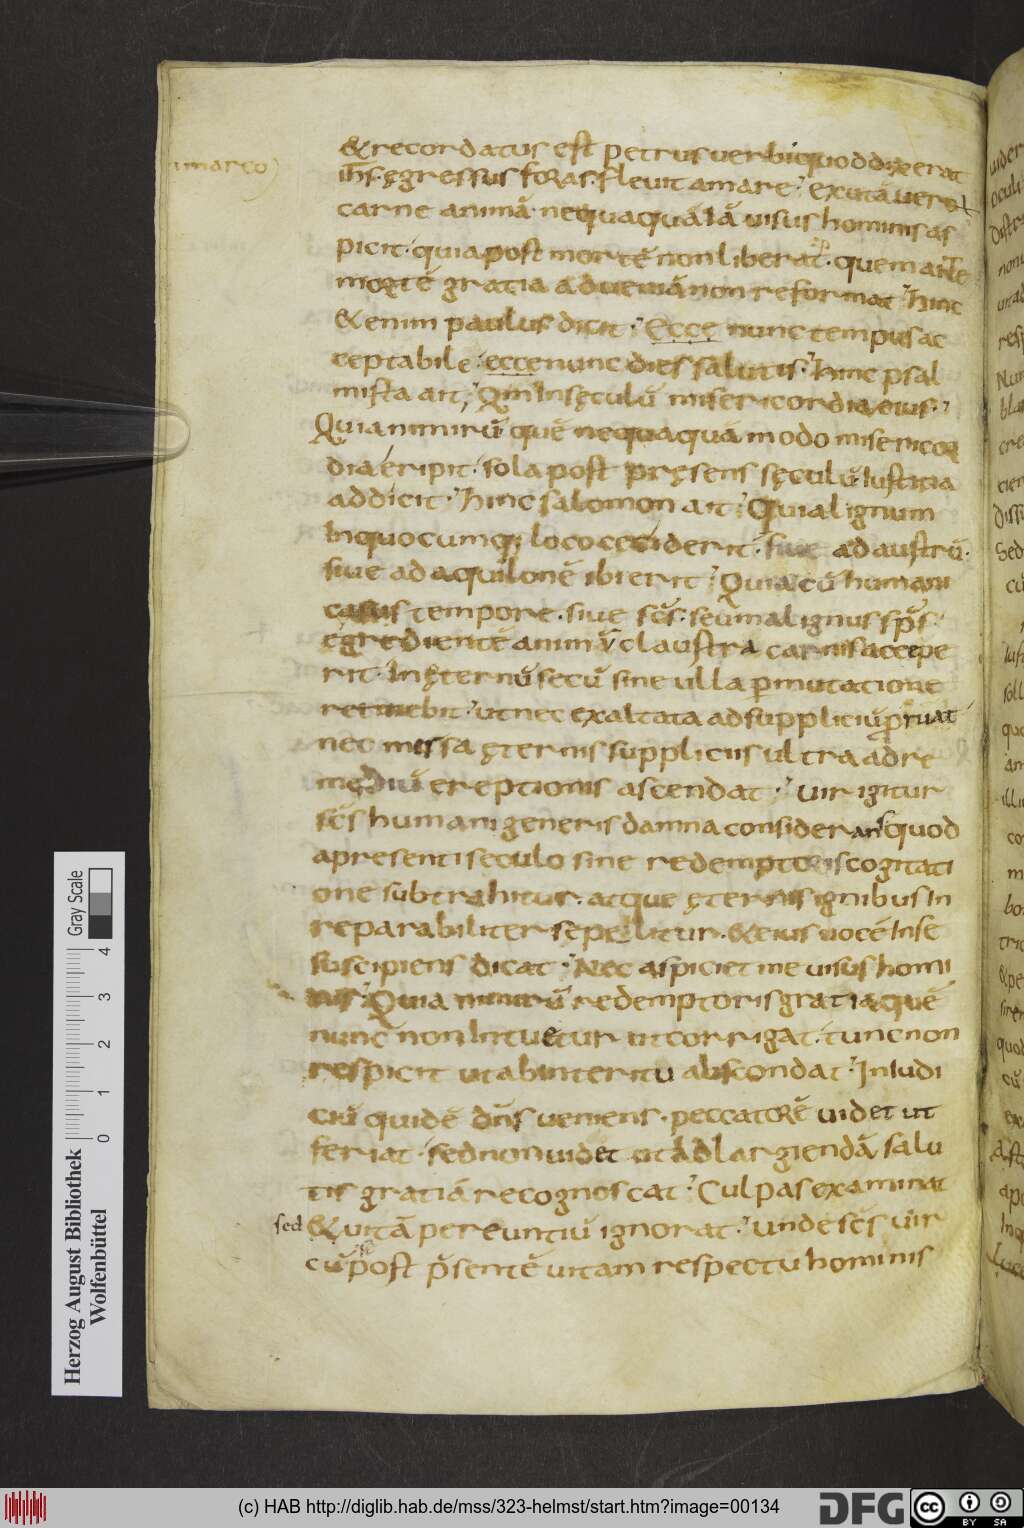 & recordatus est petrus uerbi quod dixerat
ih̄s· ęgressus foras· fleuit amare· exutā uero
in marco
carne animā· nequaquā iā uisus hominis as
picit· quia post mortē non liberat· quem ante
mortē gratia adueniā non reformat· hinc
& enim paulus dicit· Ecce nunc tempus ac
ceptabile· ecce nunc dies salutis· hinc psal
mista ait; Qm̄ In sęculū misericordia eius·
Quia nimirū quē nequaquā modo misericor
dia eripit· sola post pręsens sęculū Iustitia
addicit· hinc salomon ait· Quia lignum
In quocumq; loco ceciderit· siue ad austrū·
siue ad aquilonē ibi erit· Quia cū humani
casus tempore· siue sc̄s· seu malignus sp̄s·
egredientē animā claustra carnis accepe
rit· In ęternū secū sine ulla p̱mutatione
retinebit· ut nec exaltata ad suppliciū p̄ruat
nec mersa ęternis suppliciis ultra ad re
mędiū ereptionis ascendat· Uir igitur
sc̄s humani generis damna considerans quod
a presenti seculo sine redemptoris cogitati
one subtrahitur· atque ęternis ignibus In
reparabiliter sepellitur· & eius uocē In se
suscipiens dicat· Nec aspiciet me uisus homi
nis· Quia nimirū redemptoris gratia quē
nunc non Intuetur ut corrigat· tunc non
respicit ut ab interitu abscondat· In iudi
ciū quidē dn̄s ueniens· peccatorē uidet ut
feriat· sed non uidet ut ad largiendā salu
tis gratiā recognoscat· Culpas examinat
sed & uitā pereuntiū ignorat· unde sc̄s uir
cū post p̄sentē uitam respectu hominis
Gray Scale
0 1 2 3 4
Herzog August Bibliothek
Wolfenbüttel
(c) HAB http://diglib.hab.de/mss/323-helmst/start.htm?image=00134
DFG
cc BY SA